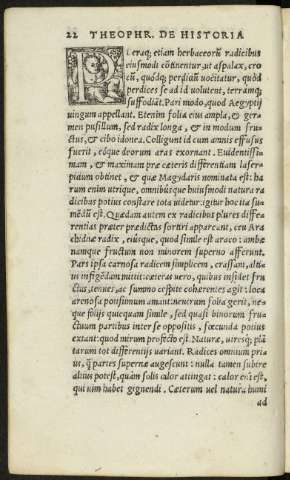 22 THEOPHR. DE HISTORIA
Pleraq; etiam herbaceorũ radicibus
eiusmodi cõtinentur, ut aspalax, cro
cũ, quódq; perdiũ uocitatur, quòd
perdices se ad id uolutent, terramq;
suffodiãt. Pari modo, quod Aegyptij
uingum appellant. Etenim folia eius ampla, & ger
men pusillum, sed radix longa, & in modum fru
ctus, & cibo idonea. Colligunt id cum amnis effusus
fuerit, eóque deorum aras exornant. Euidentissi
mam, & maximam præ cæteris differentiam laser
pitium obtinet, & quæ Magydaris nominata est: ha
rum enim utrique, omnibúsque huiusmodi natura ra
dicibus potius constare tota uidetur. igitur hoc ita su
mẽdũ est. Quædam autem ex radicibus plures diffe
rentias præter prædictas sortiri appareant, ceu Ara
chidnæ radix, eiúsque, quod simile est araco: ambæ
namque fructum non minorem superno afferunt.
Pars ipsa carnosa radicem simplicem, crassam, alti
us infigẽdam mittit: cæteras uero, quibus insidet fru
ctus, tenues, ac summo cespite cohærentes agit: loca
arenosa potissimum amant: neutrum soba gerit, ne
que folijs quicquam simile, sed quasi binorum fru
ctuum partibus inter se oppositis, fœcunda potius
extant: quod mirum profecto est. Naturæ, utresq; plã
tarum tot differentijs uariant. Radices omnium pria
us, q̃ partes supernæ augescunt: nulla tamen subire
altius potest, quàm solis odor attingat: calor eni est,
qui uim habet gignendi. Cæterum uel natura humi
ad